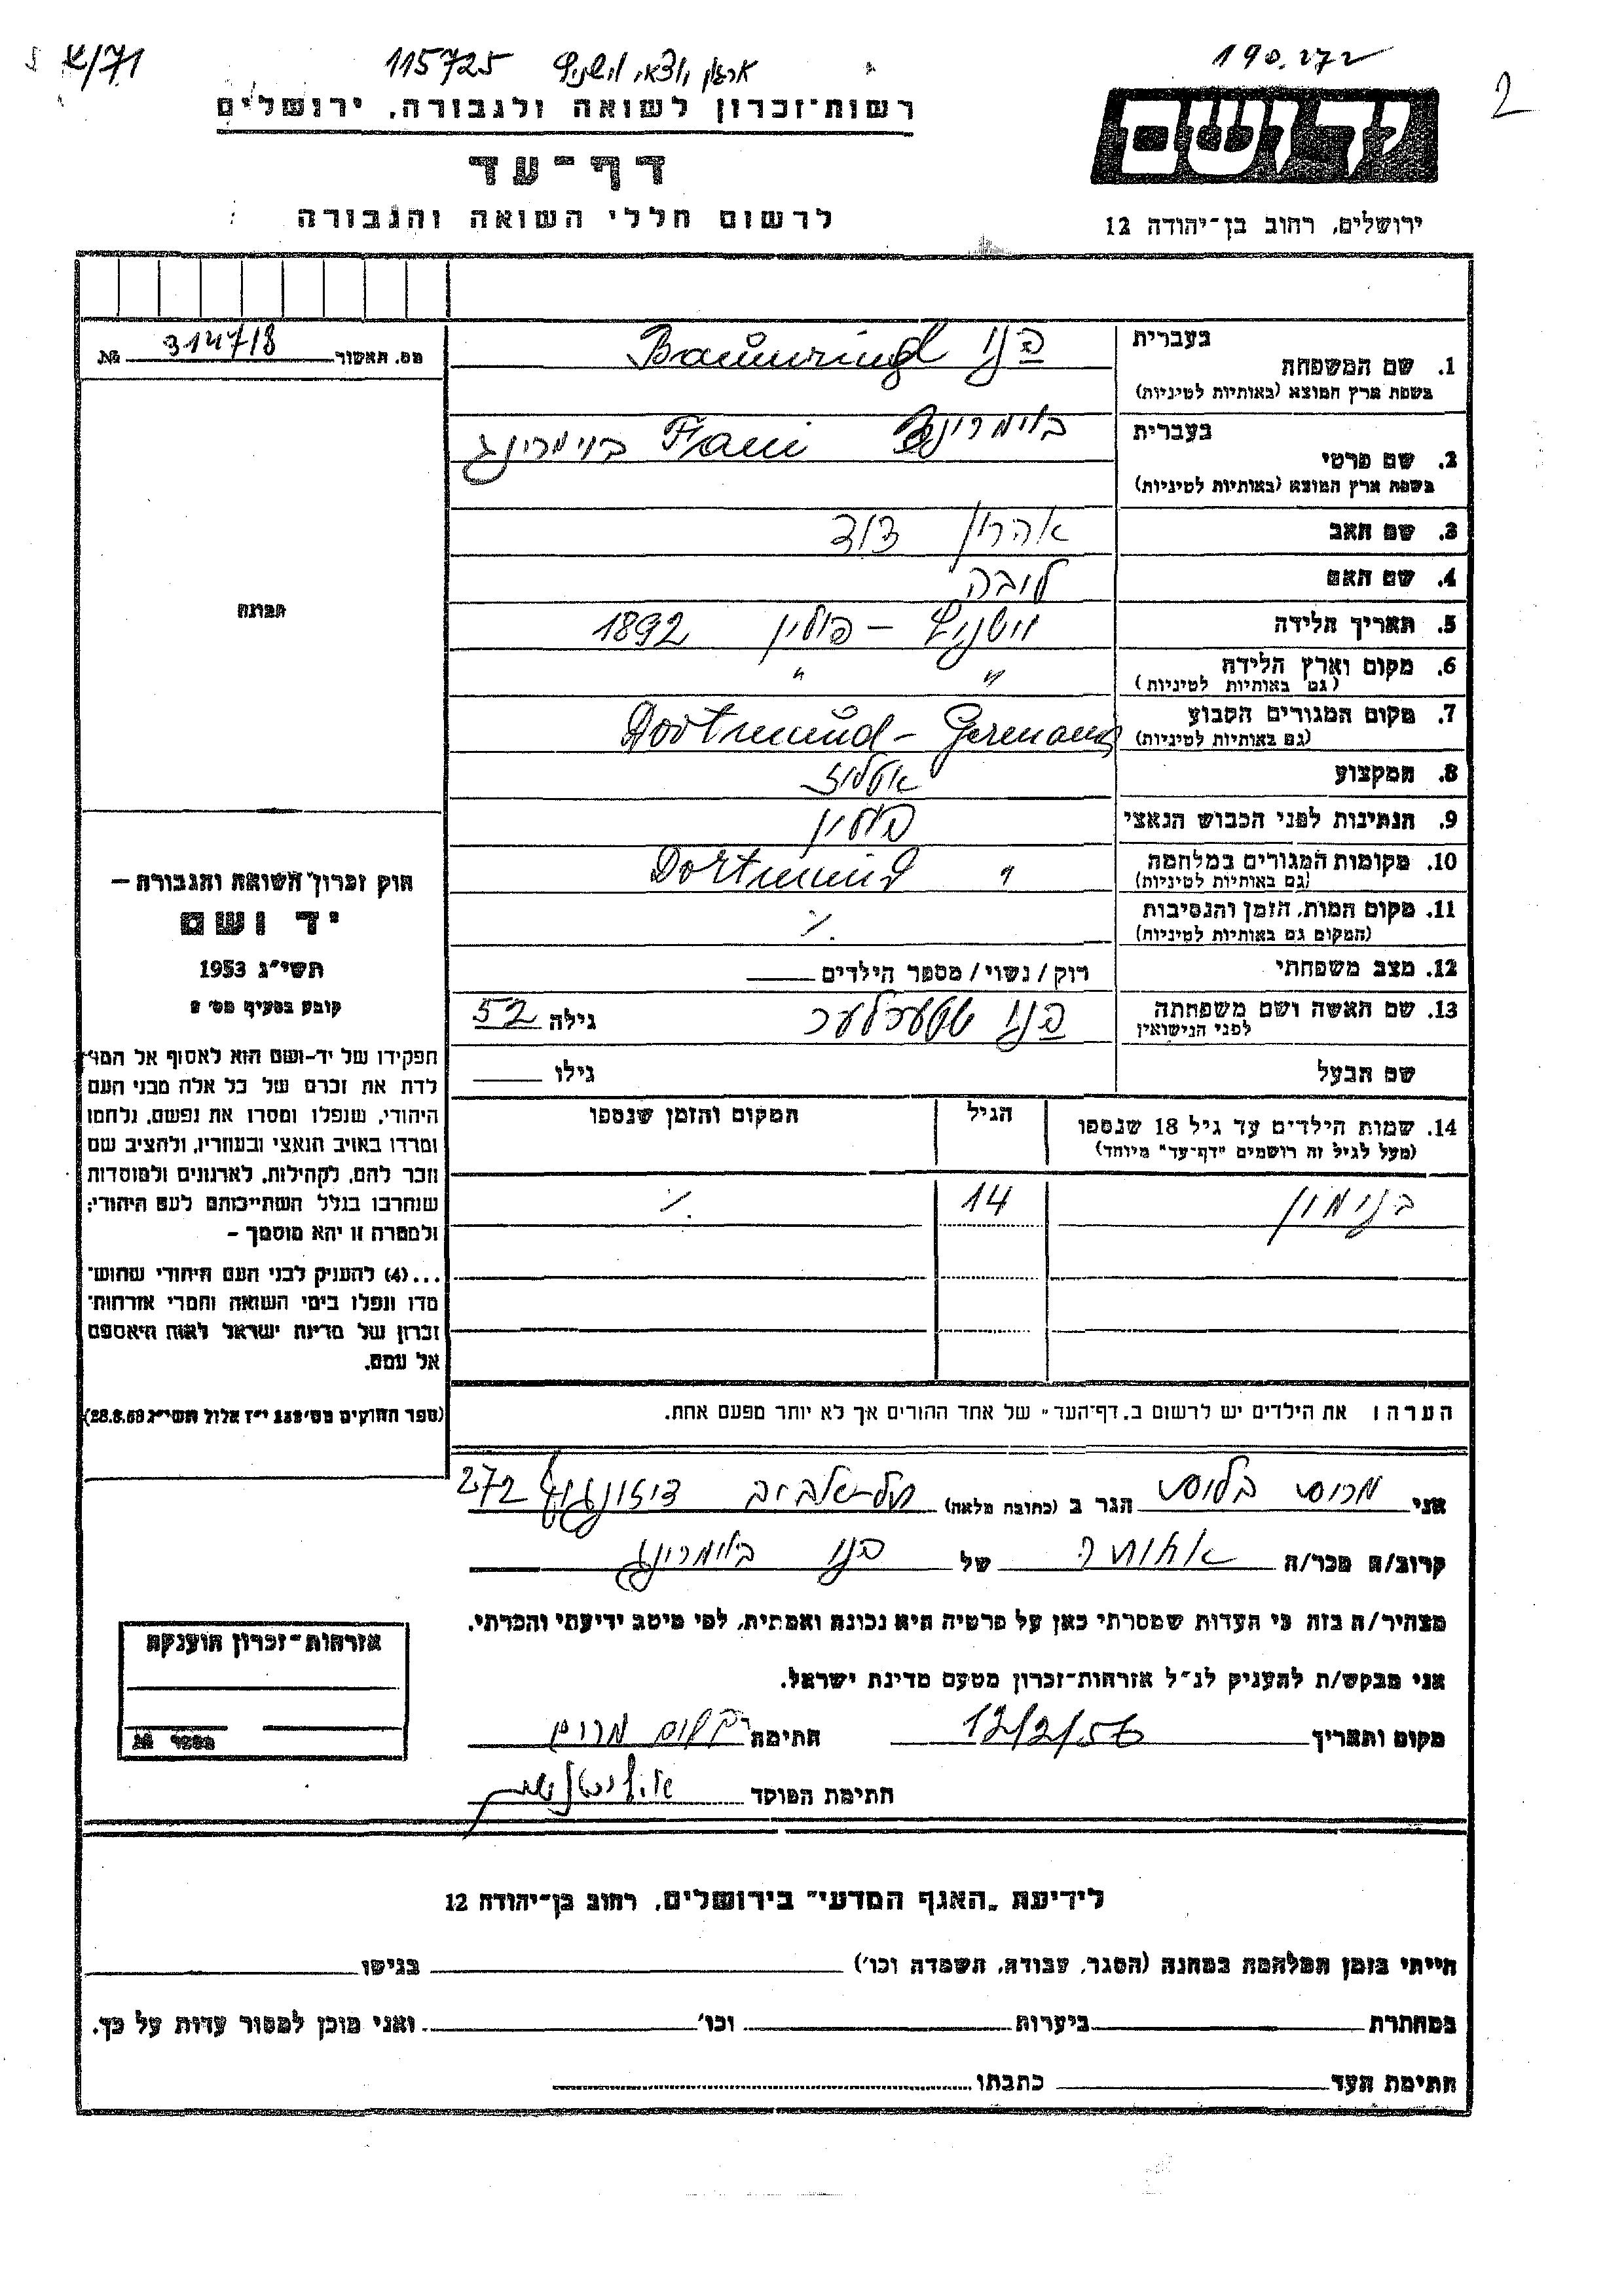 115725 ארגון יוצאי וישניץ 190.272
2
רשות־זכרון לשואה ולגבורה, ירושלים
יד ושם
דף־עד
לרשום חללי השואה והגבורה
ירושלים, רחוב בן־יהודה 12
מס. תאשור 314718 №
בעברית
1. שם המשפחה פני Baumringl
בשפת ארץ המוצא (באותיות לטיניות)
בעברית בוימרינג
2. שם פרטי Fani בוימרינג
בשפת ארץ המוצא (באותיות לטיניות)
3. שם האב אהרון דוד
4. שם האם ליבה
5. תאריך הלידה וישניץ – פולין 1892
6. מקום וארץ הלידה " "
(גם באותיות לטיניות)
7. מקום המגורים הקבוע Dortmund - Germany
(גם באותיות לטיניות)
8. המקצוע
9. הנתינות לפני הכבוש הנאצי פולין
10. מקומות המגורים במלחמה " Dortmund
(גם באותיות לטיניות)
11. מקום המות, הזמן והנסיבות ٪
(המקום גם באותיות לטיניות)
12. מצב משפחתי רוק / נשוי / מספר הילדים
13. שם האשה ושם משפחתה פני גילה 52
לפני הנישואין
שם הבעל גילו
14. שמות הילדים עד גיל 18 שנספו הגיל המקום והזמן שנספו
(מעל לגיל זה רושמים "דף־עד" מיוחד)
בנימין 14 ٪
הערה: את הילדים יש לרשום ב„דף־העד" של אחד ההורים אך לא יותר מפעם אחת.
תמונה
חוק זכרון השואה והגבורה –
יד ושם
תשי"ג 1953
קובע בסעיף מס' 2
תפקידו של יד-ושם הוא לאסוף אל המו־
לדת את זכרם של כל אלה מבני העם
היהודי, שנפלו ומסרו את נפשם, נלחמו
ומרדו באויב הנאצי ובעוזריו, ולהציב שם
וזכר להם, לקהילות, לארגונים ולמוסדות
שנחרבו בגלל השתייכותם לעם היהודי;
ולמטרה זו יהא מוסמך –
...(4) להעניק לבני העם היהודי שהוש־
מדו ונפלו בימי השואה והמרי אזרחות־
זכרון של מדינת ישראל לאות היאספם
אל עמם.
(ספר החוקים מס' 132 י"ז אלול תשי"ג 28.8.53)
אני הגר ב (כתובת מלאה) תל־אביב דיזונגוף 272
קרוב/ה מכר/ה אחותה של פני בוימרינג
מצהיר/ה בזה כי העדות שמסרתי כאן על פרטיה היא נכונה ואמתית, לפי מיטב ידיעתי והכרתי.
אני מבקש/ת להעניק לנ"ל אזרחות־זכרון מטעם מדינת ישראל.
מקום ותאריך 12/2/56 חתימה
חתימת הפוקד
אזרחות־זכרון הוענקה
מספר №
לידיעת „האגף המדעי" בירושלים, רחוב בן־יהודה 12
הייתי בזמן המלחמה במחנה (הסגר, עבודה, השמדה וכו') בגיטו
במחתרת ביערות וכו' ואני מוכן למסור עדות על כך.
חתימת העד כתבתו